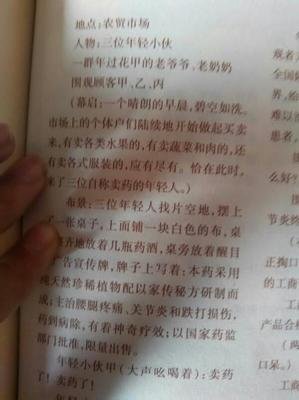 地点:农贸市场
人物:三位年轻小伙
一群年过花甲的老爷爷、老奶奶
围观顾客甲、乙、丙
(幕启:一个晴朗的早晨,碧空如洗。
市场上的个体户们陆续地开始做起买卖
来,有卖各类水果的,有卖蔬菜和肉的,还
有卖各式服装的,应有尽有。恰在此时,
来了三位自称卖药的年轻人。)
布景:三位年轻人找片空地,摆上
了一张桌子,上面铺一块白色的布,桌
整齐地放着几瓶药酒,桌旁放着醒目
广告宣传牌,牌子上写着:本药采用
纯天然珍稀植物配以家传秘方研制而
成;主治腰腿疼痛、关节炎和跌打损伤,
药到病除,有着神奇疗效;以国家药监
部门批准,限量出售。
年轻小伙甲(大声吆喝着):卖药
了!卖药了!
观者
全国
男,给
难以
患者
么好?
节炎
正掏口
的工商
工商
产品合
(两
口呆。)
工商